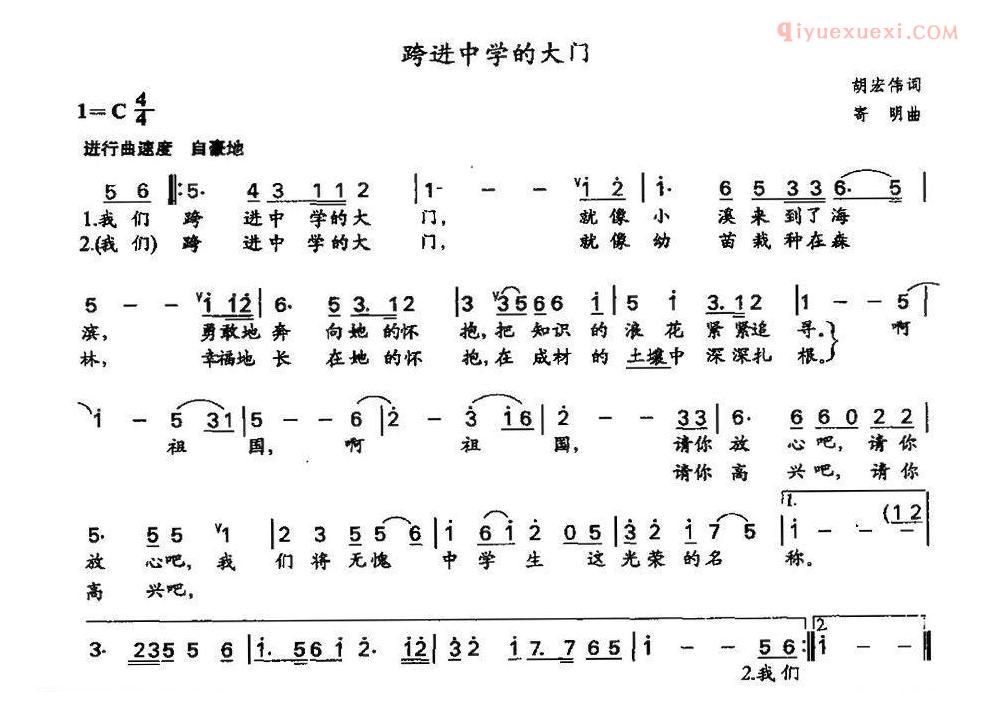 qiyuexuexi.COM
跨进中学的大门
胡宏伟词
1=C 4/4
寄 明曲
进行曲速度 自豪地
5 6 ‖: 5· 4 3 1 1 2 | 1- - - ∨i 2 | i· 6 5 3 3 6· 5 |
1.我们 跨 进中 学的大 门, 就像小 溪来到了海
2.(我们) 跨 进中 学的大 门, 就像幼 苗栽种在森
5 - - ∨i i 2 | 6· 5 3· 1 2 | 3 ∨3 5 6 6 i | 5 i 3· 1 2 | 1 - - 5 |
滨, 勇敢地奔 向她的怀 抱,把知识的浪花紧紧追寻。 啊
林, 幸福地长 在她的怀 抱,在成材的土壤中深深扎根。
i - 5 3 1 | 5 - - 6 | 2 - 3 i 6 | 2 - - 3 3 | 6· 6 6 0 2 2 |
祖 国, 啊 祖 国, 请你放 心吧,请你
请你高 兴吧,请你
1. (1 2
5· 5 5 ∨1 | 2 3 5 5 6 | i 6 i 2 0 5 | 3 2 i 7 5 | i - - -
放 心吧,我 们将无愧 中学生 这光荣的名 称。
高 兴吧,
3· 2 3 5 5 6 | i· 5 6 i 2· i 2 | 3 2 i 7· 7 6 5 | i - - 5 6 :‖ 2 i - - ‖
2.我们